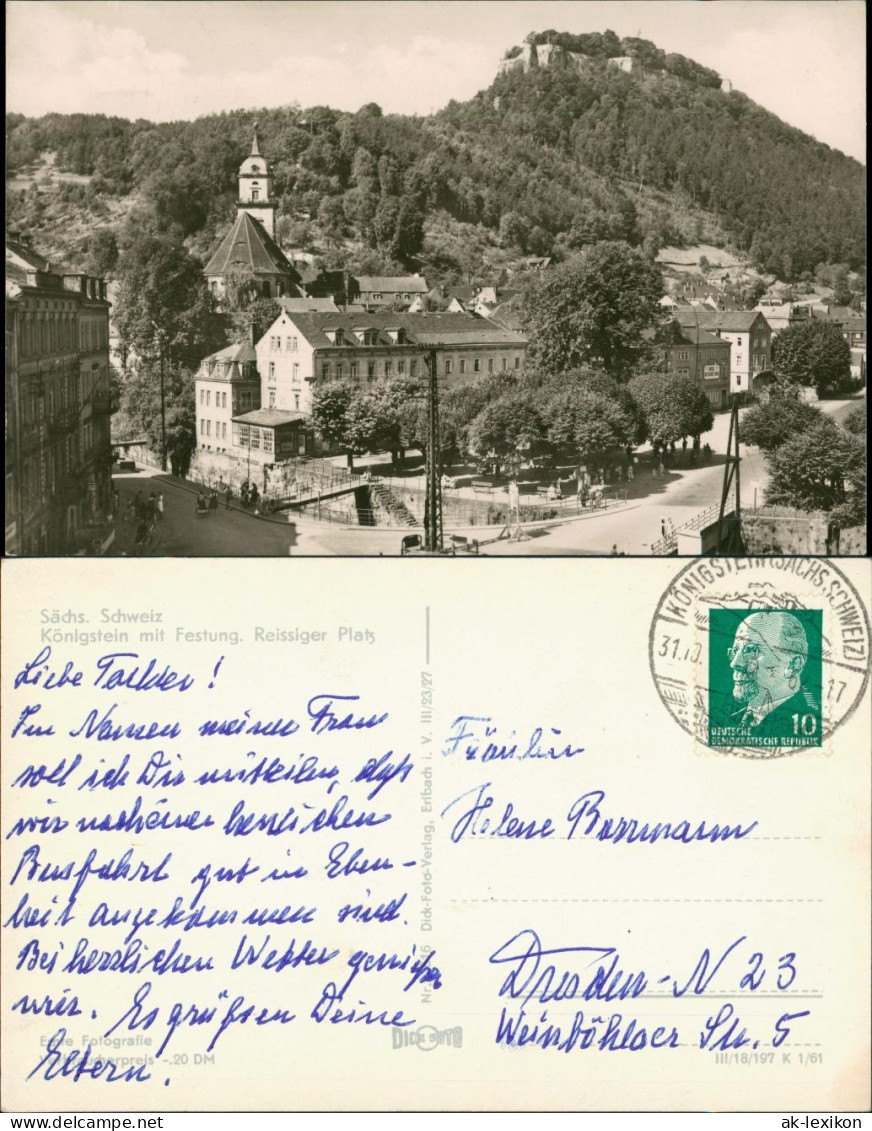 Sächs. Schweiz
Königstein mit Festung. Reissiger Platz
Liebe
Im Namen meiner Frau
soll ich Dir mitteilen, daß
wir nach einer herrlichen
Busfahrt gut in Eben-
heit angekommen sind.
Bei herrlichen Wetter genießen
wir. Es grüßen Deine
Eltern.
Echte Fotografie
Verbraucherpreis -.20 DM
Dick-Foto-Verlag, Erlbach i. V. III/23/27
DICK FOTO
KÖNIGSTEIN (SÄCHS. SCHWEIZ)
31.10.
17
10
DEUTSCHE
DEMOKRATISCHE REPUBLIK
Fräulein
Helene Borrmann
Dresden-N 23
Weinböhlaer Str. 5
III/18/197 K 1/61
ak-lexikon